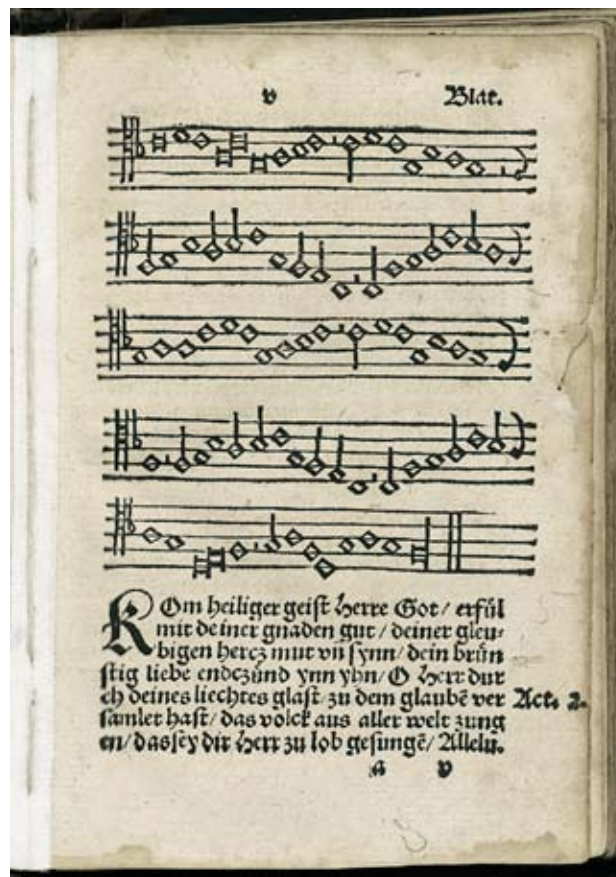 v Blat.
KOm heiliger geist Herre Got / erfül
mit deiner gnaden gut / deiner gleu-
bigen hercz mut vñ synn / dein brün
stig liebe endczünd ynn yhn / O Herr dur
ch deines liechtes glast / zu dem glaubē ver Act. 2.
samlet hast / das volck aus aller welt zung
en / das sey dir Herr zu lob gesungē / Allelu.
a v